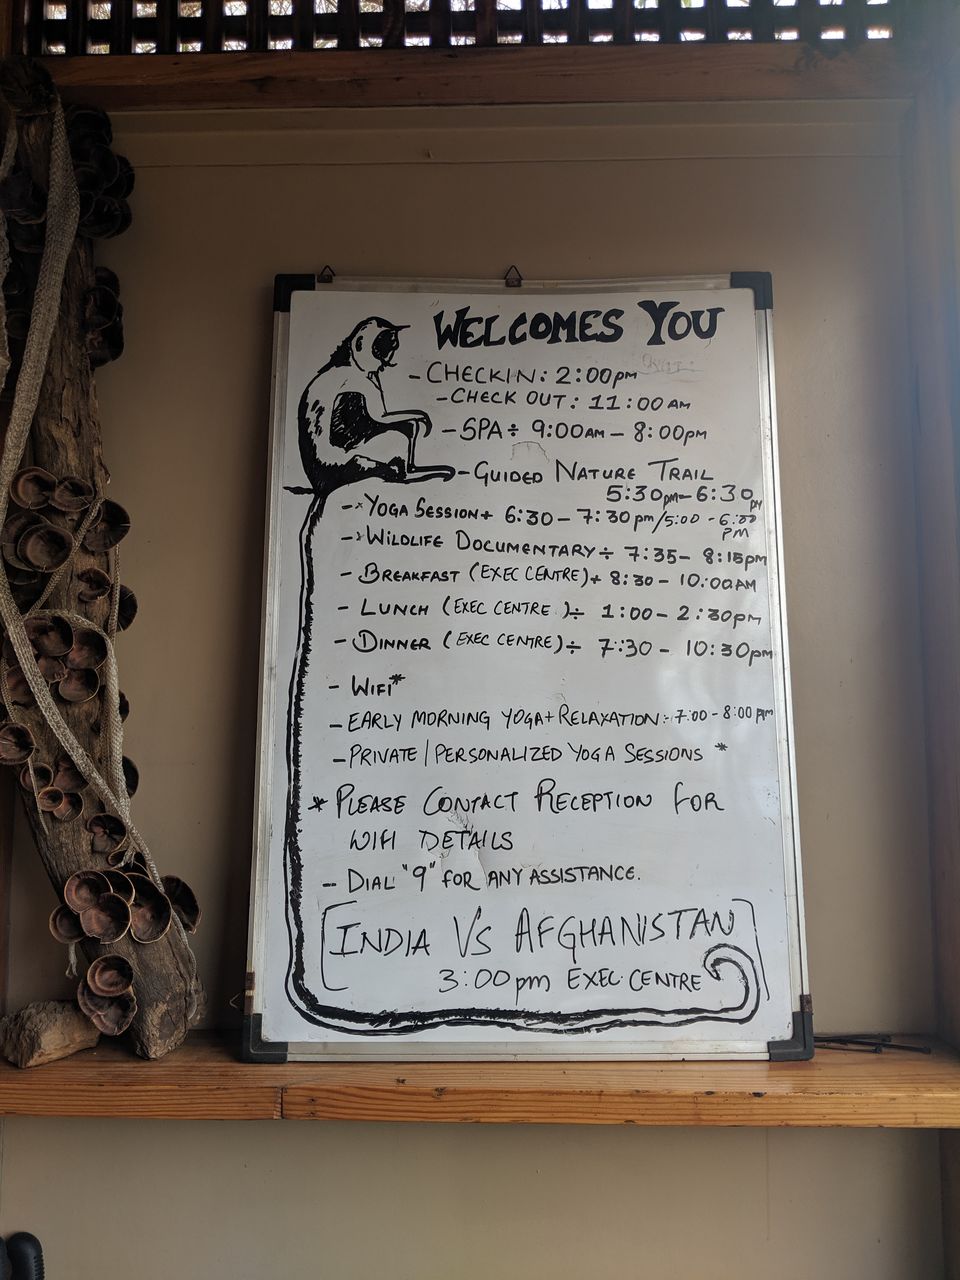 WELCOMES YOU
- CHECKIN: 2:00pm
- CHECK OUT: 11:00 AM
- SPA ÷ 9:00AM - 8:00pm
- GUIDED NATURE TRAIL
5:30pm - 6:30pm
- YOGA SESSION+ 6:30 - 7:30pm/5:00 - 6:00 PM
- WILDLIFE DOCUMENTARY ÷ 7:35 - 8:15pm
- BREAKFAST (EXEC CENTRE)+ 8:30 - 10:00AM
- LUNCH (EXEC CENTRE.) ÷ 1:00 - 2:30pm
- DINNER (EXEC CENTRE) ÷ 7:30 - 10:30pm
- WIFI*
- EARLY MORNING YOGA+RELAXATION:- 7:00 - 8:00 pm
- PRIVATE | PERSONALIZED YOGA SESSIONS *
* PLEASE CONTACT RECEPTION FOR
WIFI DETAILS
- DIAL "9" FOR ANY ASSISTANCE.
[INDIA VS AFGHANISTAN]
3:00pm EXEC. CENTRE